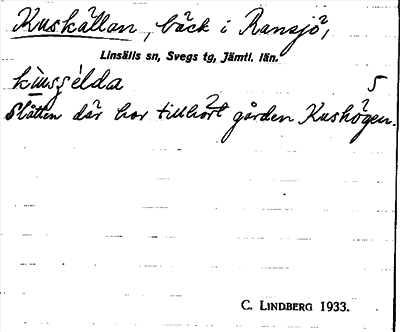 Kuskällan, bäck i Ransjö,
Linsälls sn, Svegs tg, Jämtl. län.
5
Slåtten där har tillhört gården Kushögen.
C. LINDBERG 1933.